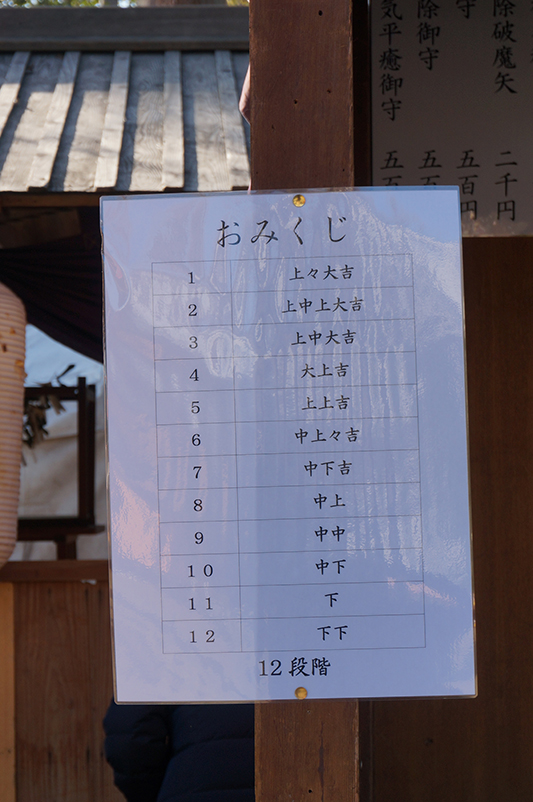 おみくじ
1 上々大吉
2 上中上大吉
3 上中大吉
4 大上吉
5 上上吉
6 中上々吉
7 中下吉
8 中上
9 中中
10 中下
11 下
12 下下
12段階
除破魔矢 二千円
守 五百円
除御守 五
気平癒御守 五